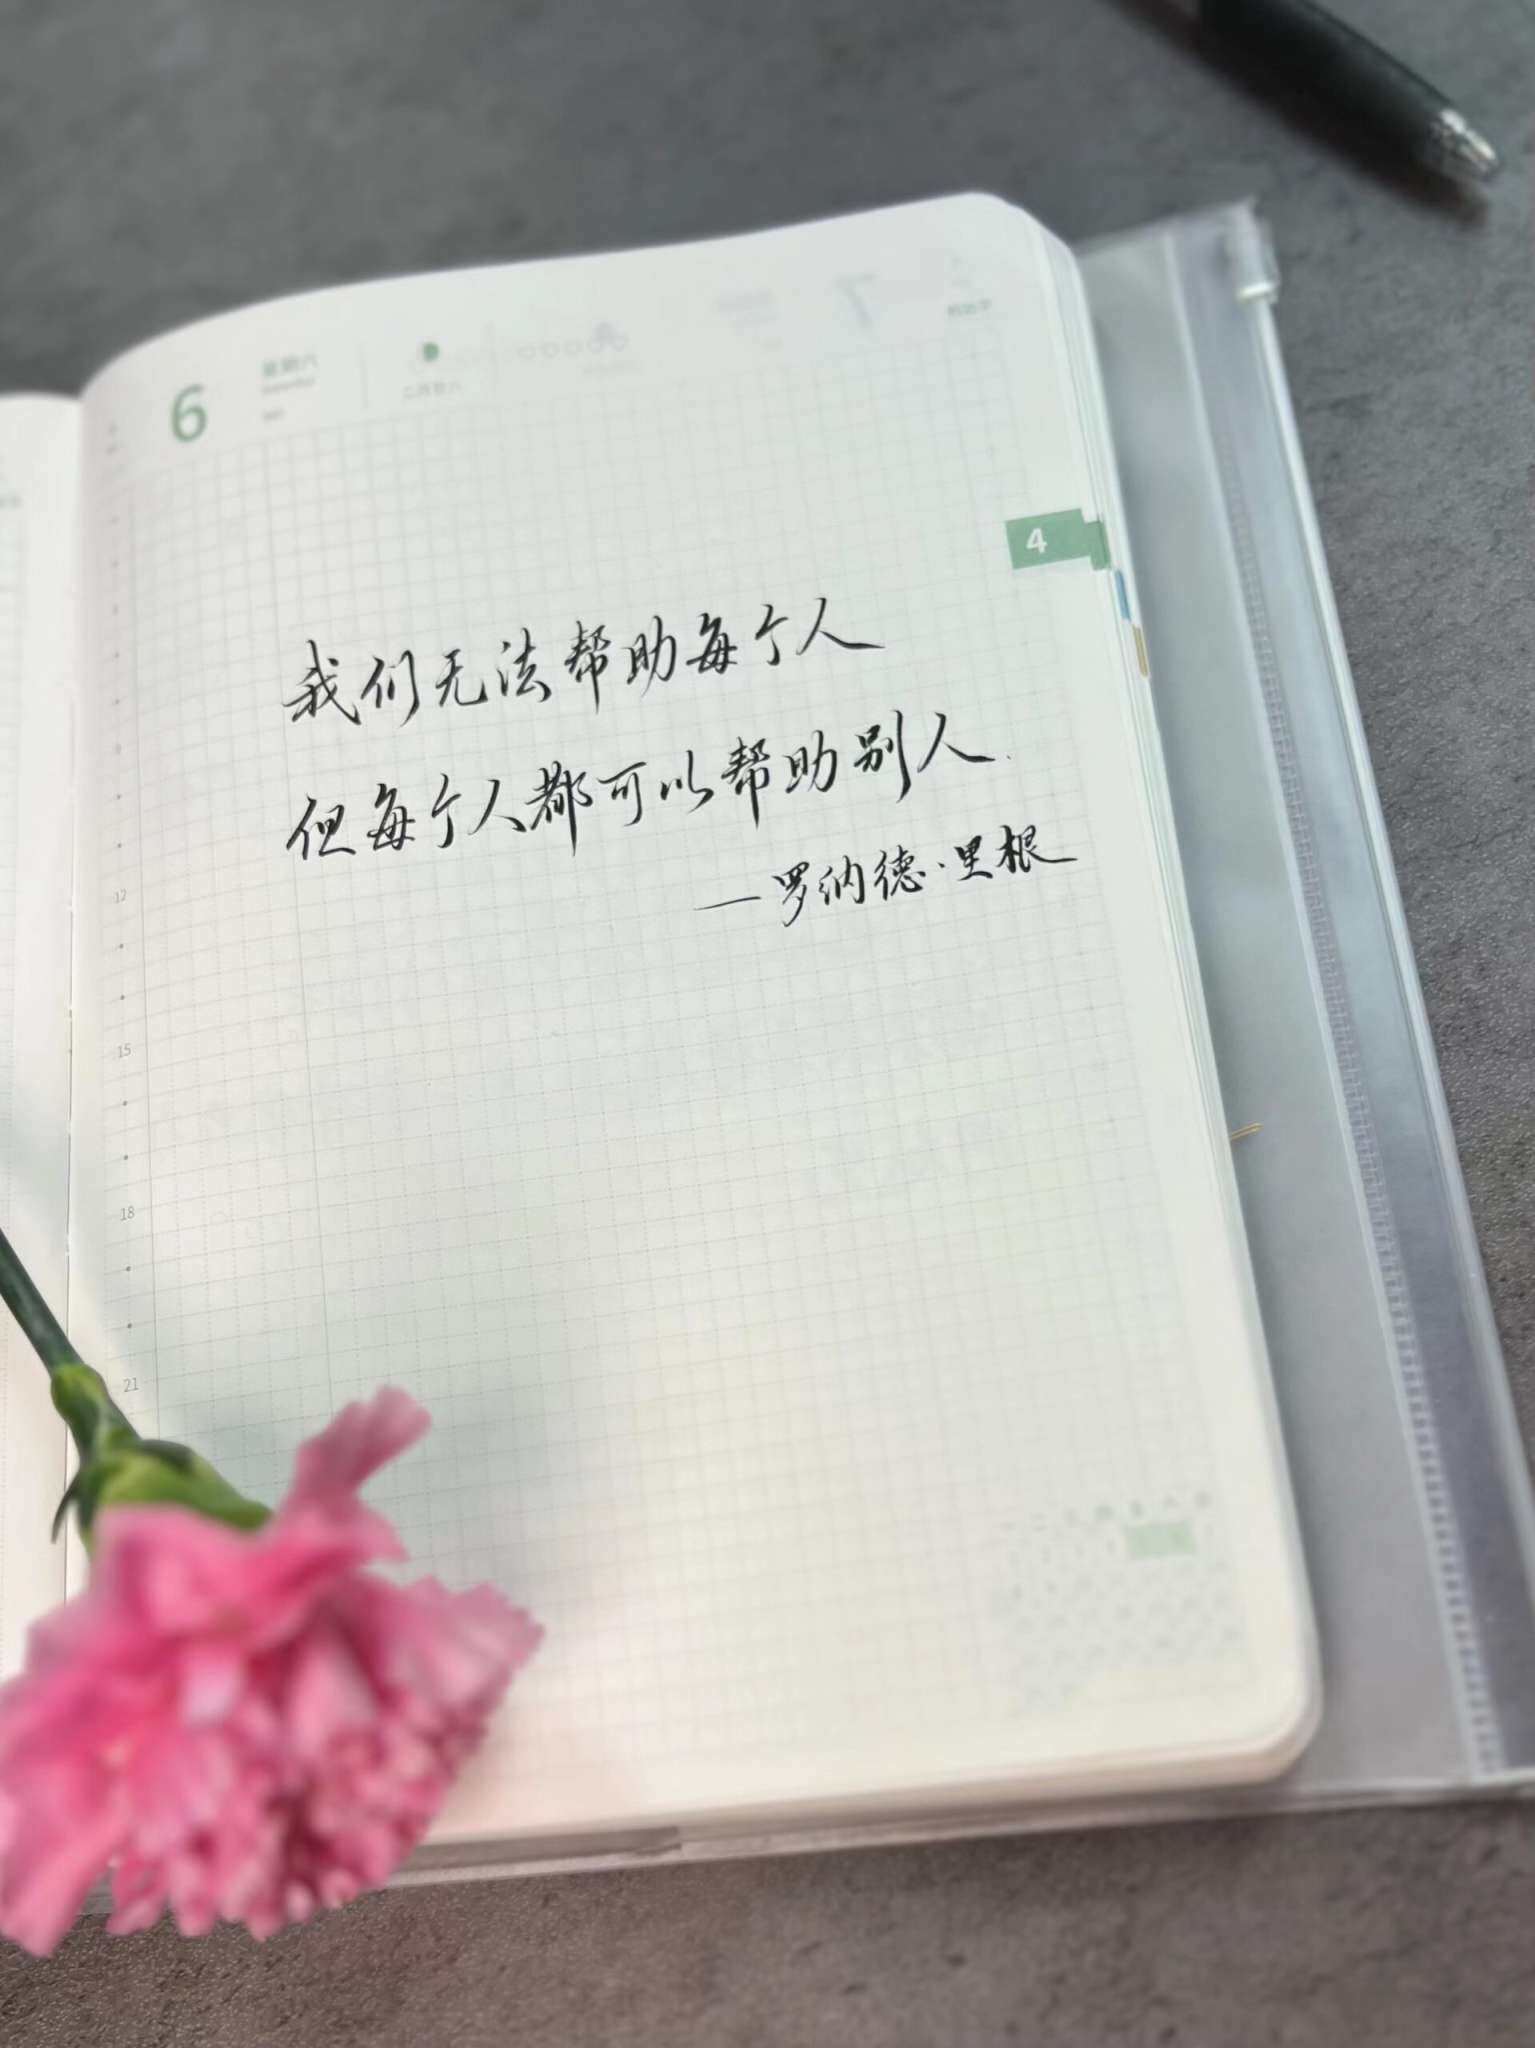 6
星期六
二月廿八
4
我们无法帮助每个人
但每个人都可以帮助别人.
—罗纳德·里根
12
15
18
21